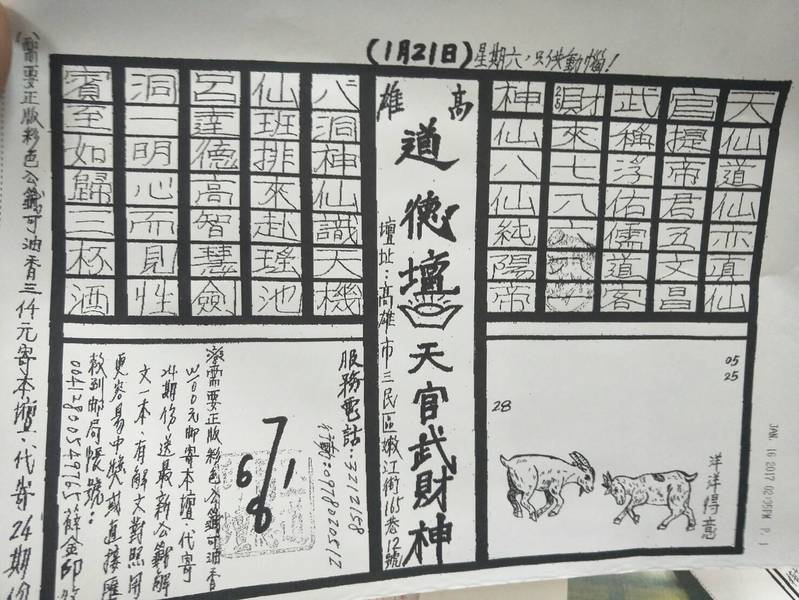 (1月21日)星期六,只供動惱!
天仙道仙亦真仙
官提帝君五文昌
武稱浮佑儒道客
財來七八六
神仙八仙純陽帝
高雄
道德壇
天官武財神
壇址:高雄市三民區嫩江街165巷12號
八洞神仙識天機
仙班排來赴瑤池
呂達德高智慧劍
洞一明心而見性
賓至如歸三杯酒
05
25
28
洋洋得意
服務電話:3212158
行動:0978020512
需要正版彩色公籤可油香
00元邮寄本壇、代寄
24期份送最新公籤解
文一本、有解文對照用
更容易中獎或直接匯
款到邮局帳號:
00412800549765
6 7 1
8
需要正版彩色公籤可油香三仟元寄本壇、代寄24期份
JAN. 16 2017 02:35PM P. 1